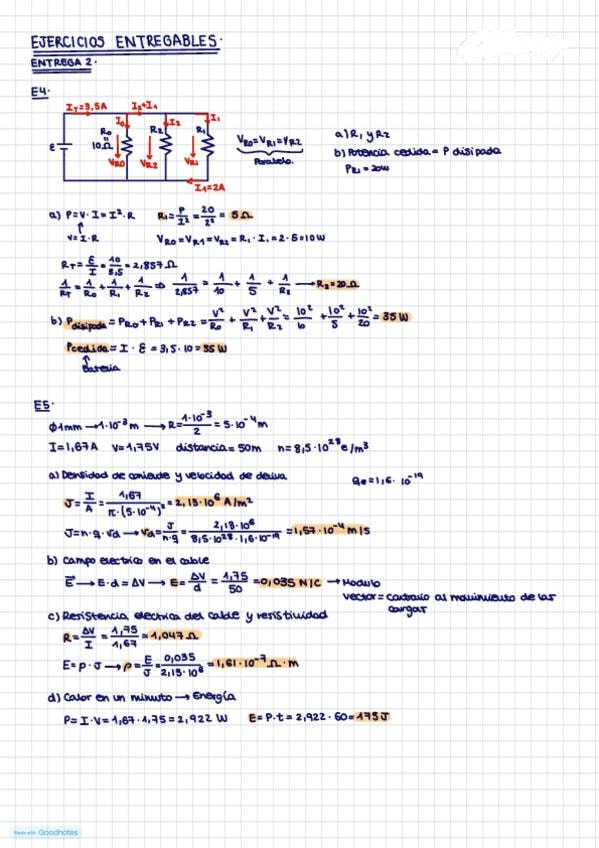 EJERCICIOS ENTREGABLES.
ENTREGA 2.
E4.
I_T=3,5A I_2+I_1
I_0 I_2 I_1
R_0 R_2 R_1
10Ω
ε
V_R0 V_R2 V_R1
I_1=2A
V_R0=V_R1=V_R2
Paralelo.
a) R_1 y R_2
b) Potencia cedida = P disipada
P_R1 = 20W
a) P=V·I=I²·R R_1=P/I²=20/2²=5Ω
V=I·R
V_R0=V_R1=V_R2=R_1·I_1=2·5=10W
R_T=ε/I=10/3,5=2,857Ω
1/R_T=1/R_0+1/R_1+1/R_2 ⇒ 1/2,857=1/10+1/5+1/R_2 → R_2=20Ω
b) P_disipada=P_R0+P_R1+P_R2=V²/R_0+V²/R_1+V²/R_2=10²/10+10²/5+10²/20=35W
P_cedida=I·ε=3,5·10=35W
Bateria
E5.
ϕ1mm→1·10⁻³m → R=1·10⁻³/2=5·10⁻⁴m
I=1,67A V=1,75V distancia=50m n=8,5·10²⁸e/m³
a) Densidad de corriente y velocidad de deriva qe=1,6·10⁻¹⁹
J=I/A=1,67/π·(5·10⁻⁴)²=2,13·10⁶A/m²
J=n·q·vd→vd=J/n·q=2,13·10⁶/8,5·10²⁸·1,6·10⁻¹⁹=1,57·10⁻⁴m/s
b) Campo electrico en el cable
E⃗→E·d=ΔV→E=ΔV/d=1,75/50=0,035N/C → Modulo
vector=contrario al movimiento de las
cargas
c) Resistencia electrica del cable y resistividad
R=ΔV/I=1,75/1,67=1,047Ω
E=ρ·J→ρ=E/J=0,035/2,13·10⁶=1,61·10⁻⁷Ω·m
d) Calor en un minuto → Energía
P=I·V=1,67·1,75=2,922W E=P·t=2,922·60=175J
Made with Goodnotes